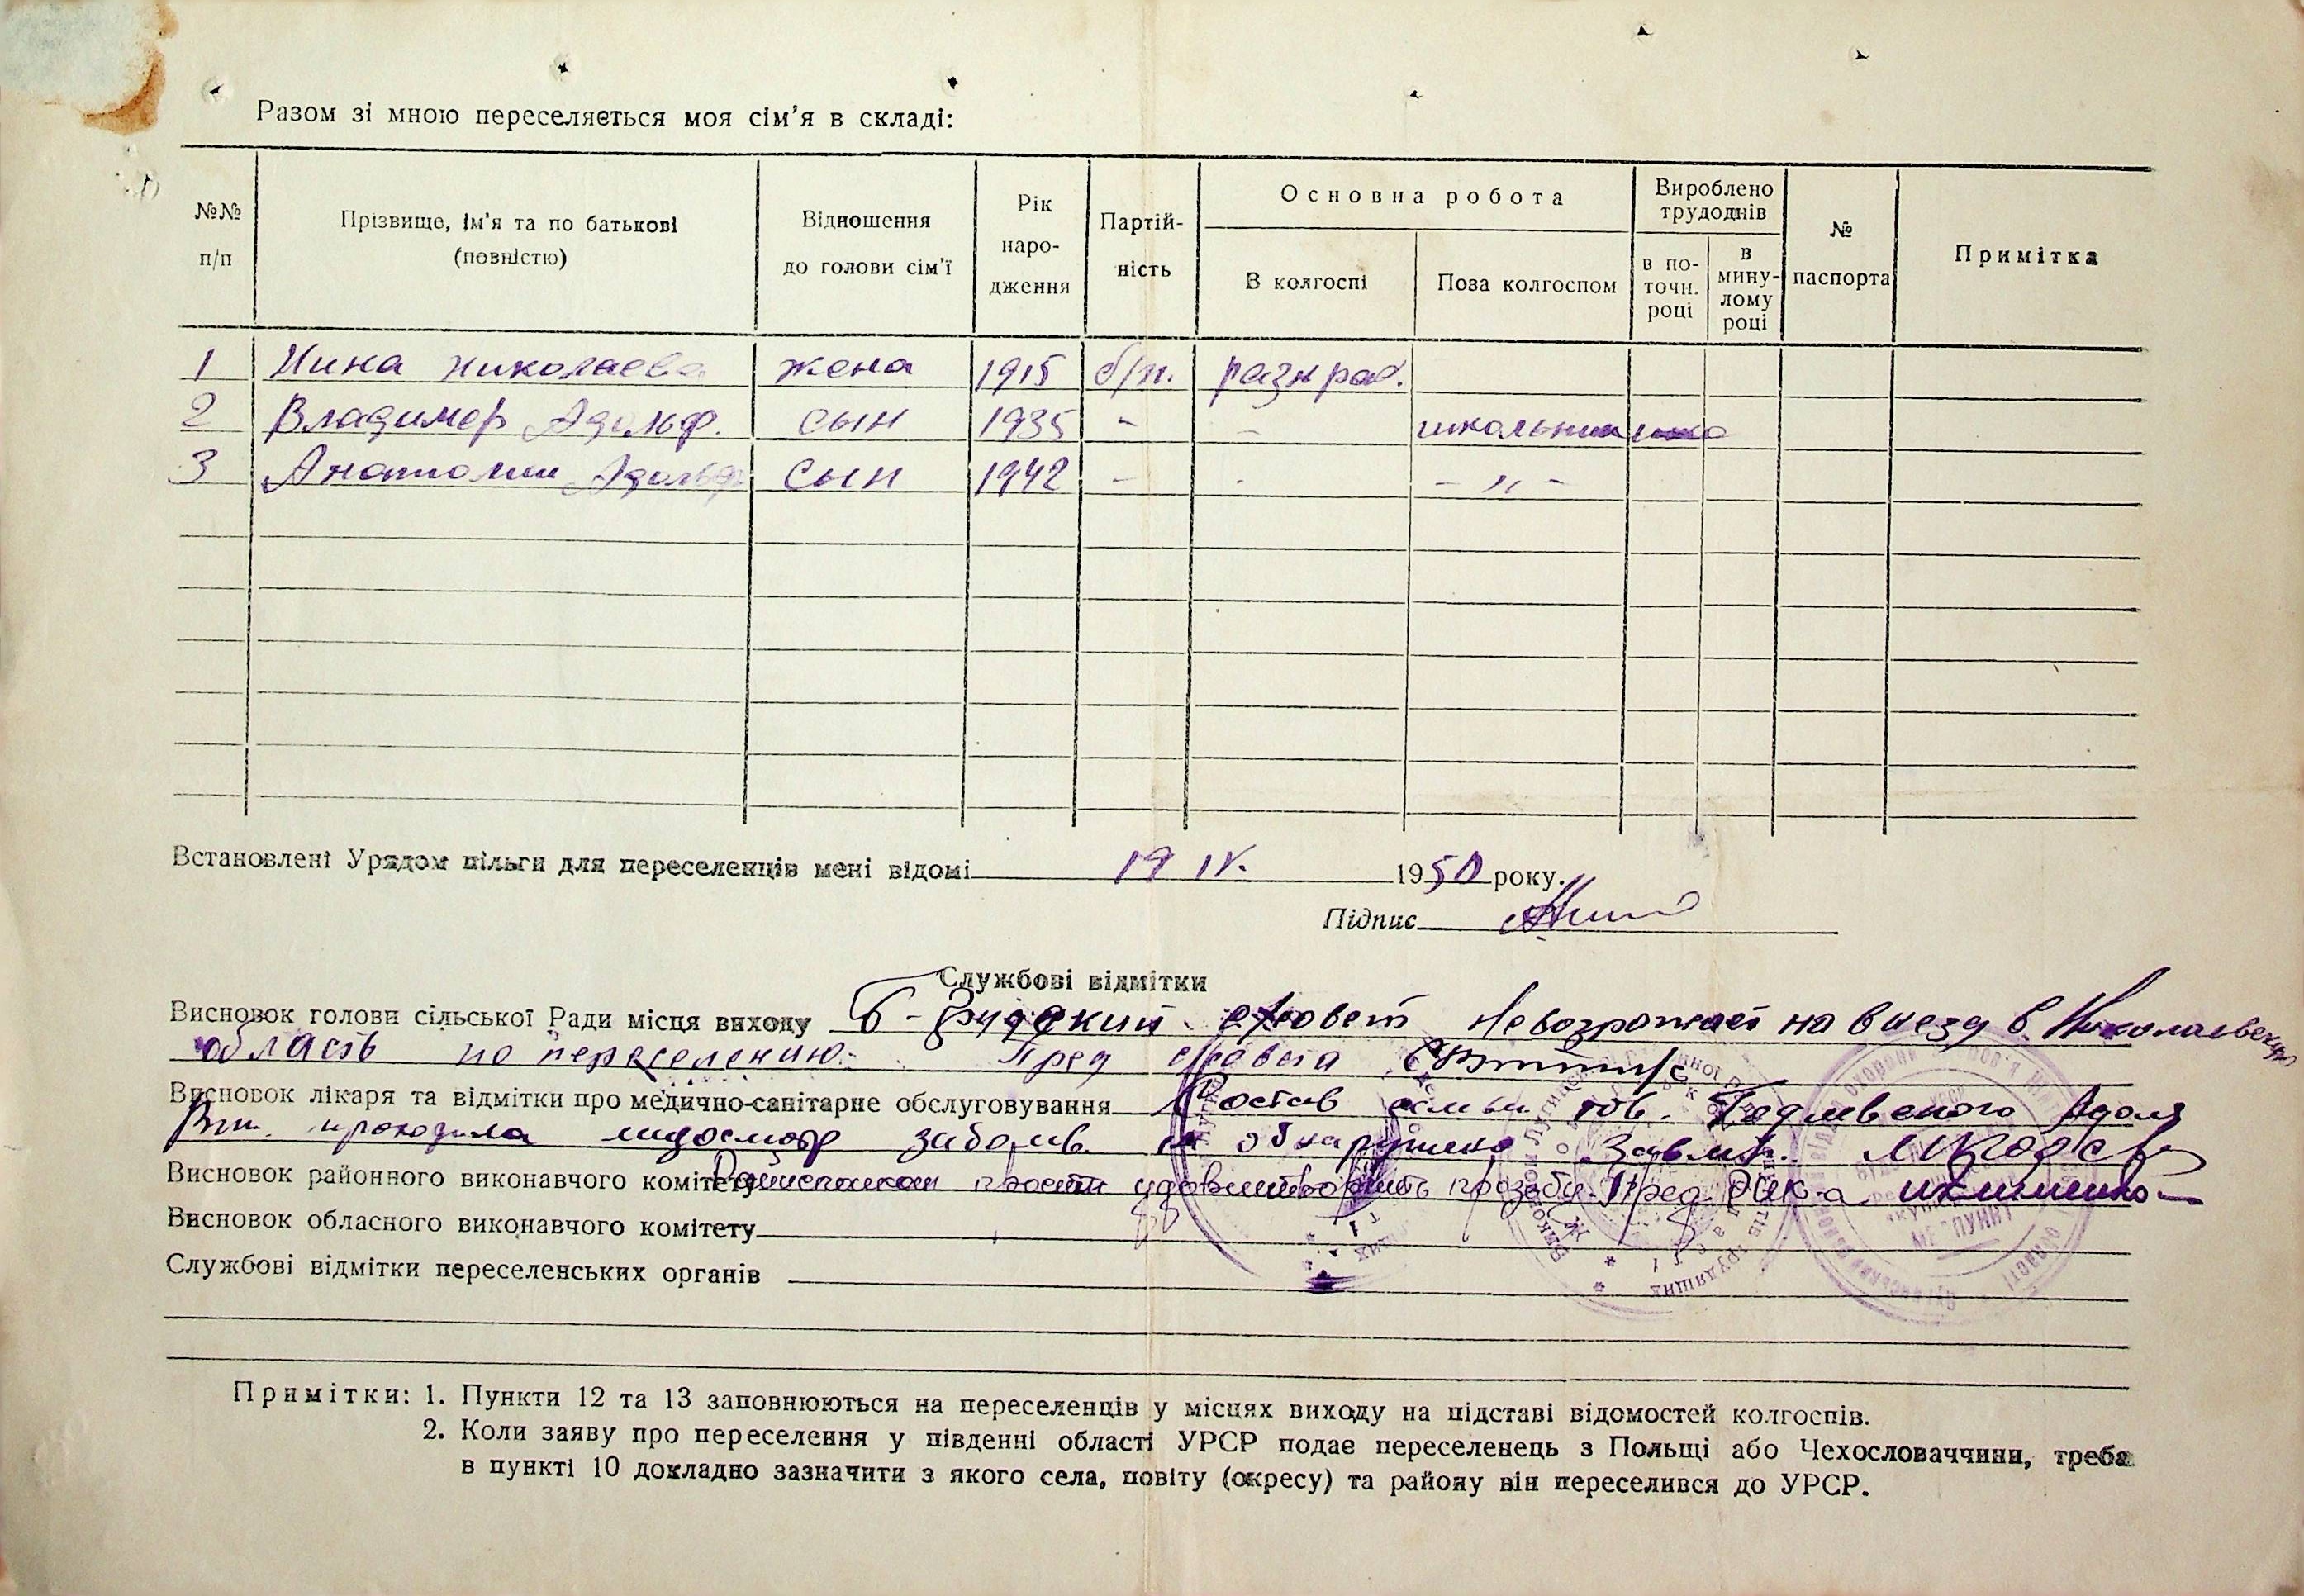 Разом зі мною переселяється моя сім'я в складі:
№№ п/п
Прізвище, ім'я та по батькові (повністю)
Відношення до голови сім'ї
Рік народження
Партійність
Основна робота
В колгоспі
Поза колгоспом
Вироблено трудоднів
в поточн. році
в минулому році
№ паспорта
Примітка
1 Нина Николаева жена 1915 б/п. разнраб.
2 Владимер Адольф. сын 1935 - - школьник
3 Анатолии Адольф сын 1942 - - - " -
Встановлені Урядом пільги для переселенців мені відомі 19 IV. 1950 року.
Підпис
Службові відмітки
Висновок голови сільської Ради місця виходу Б- с/совет Невозражает на виезд в Николаевскую
область по переселению. Пред с/совета
Висновок лікаря та відмітки про медично-санітарне обслуговування Состав семьи тов.
проходила медосмотр заболев. не обнаружено
Висновок районного виконавчого комітету Райисполком просит удовлетворить прозьбу. Пред. РИК-а
Висновок обласного виконавчого комітету
Службові відмітки переселенських органів
Примітки: 1. Пункти 12 та 13 заповнюються на переселенців у місцях виходу на підставі відомостей колгоспів.
2. Коли заяву про переселення у південні області УРСР подає переселенець з Польщі або Чехословаччини, треба
в пункті 10 докладно зазначити з якого села, повіту (окресу) та району він переселився до УРСР.